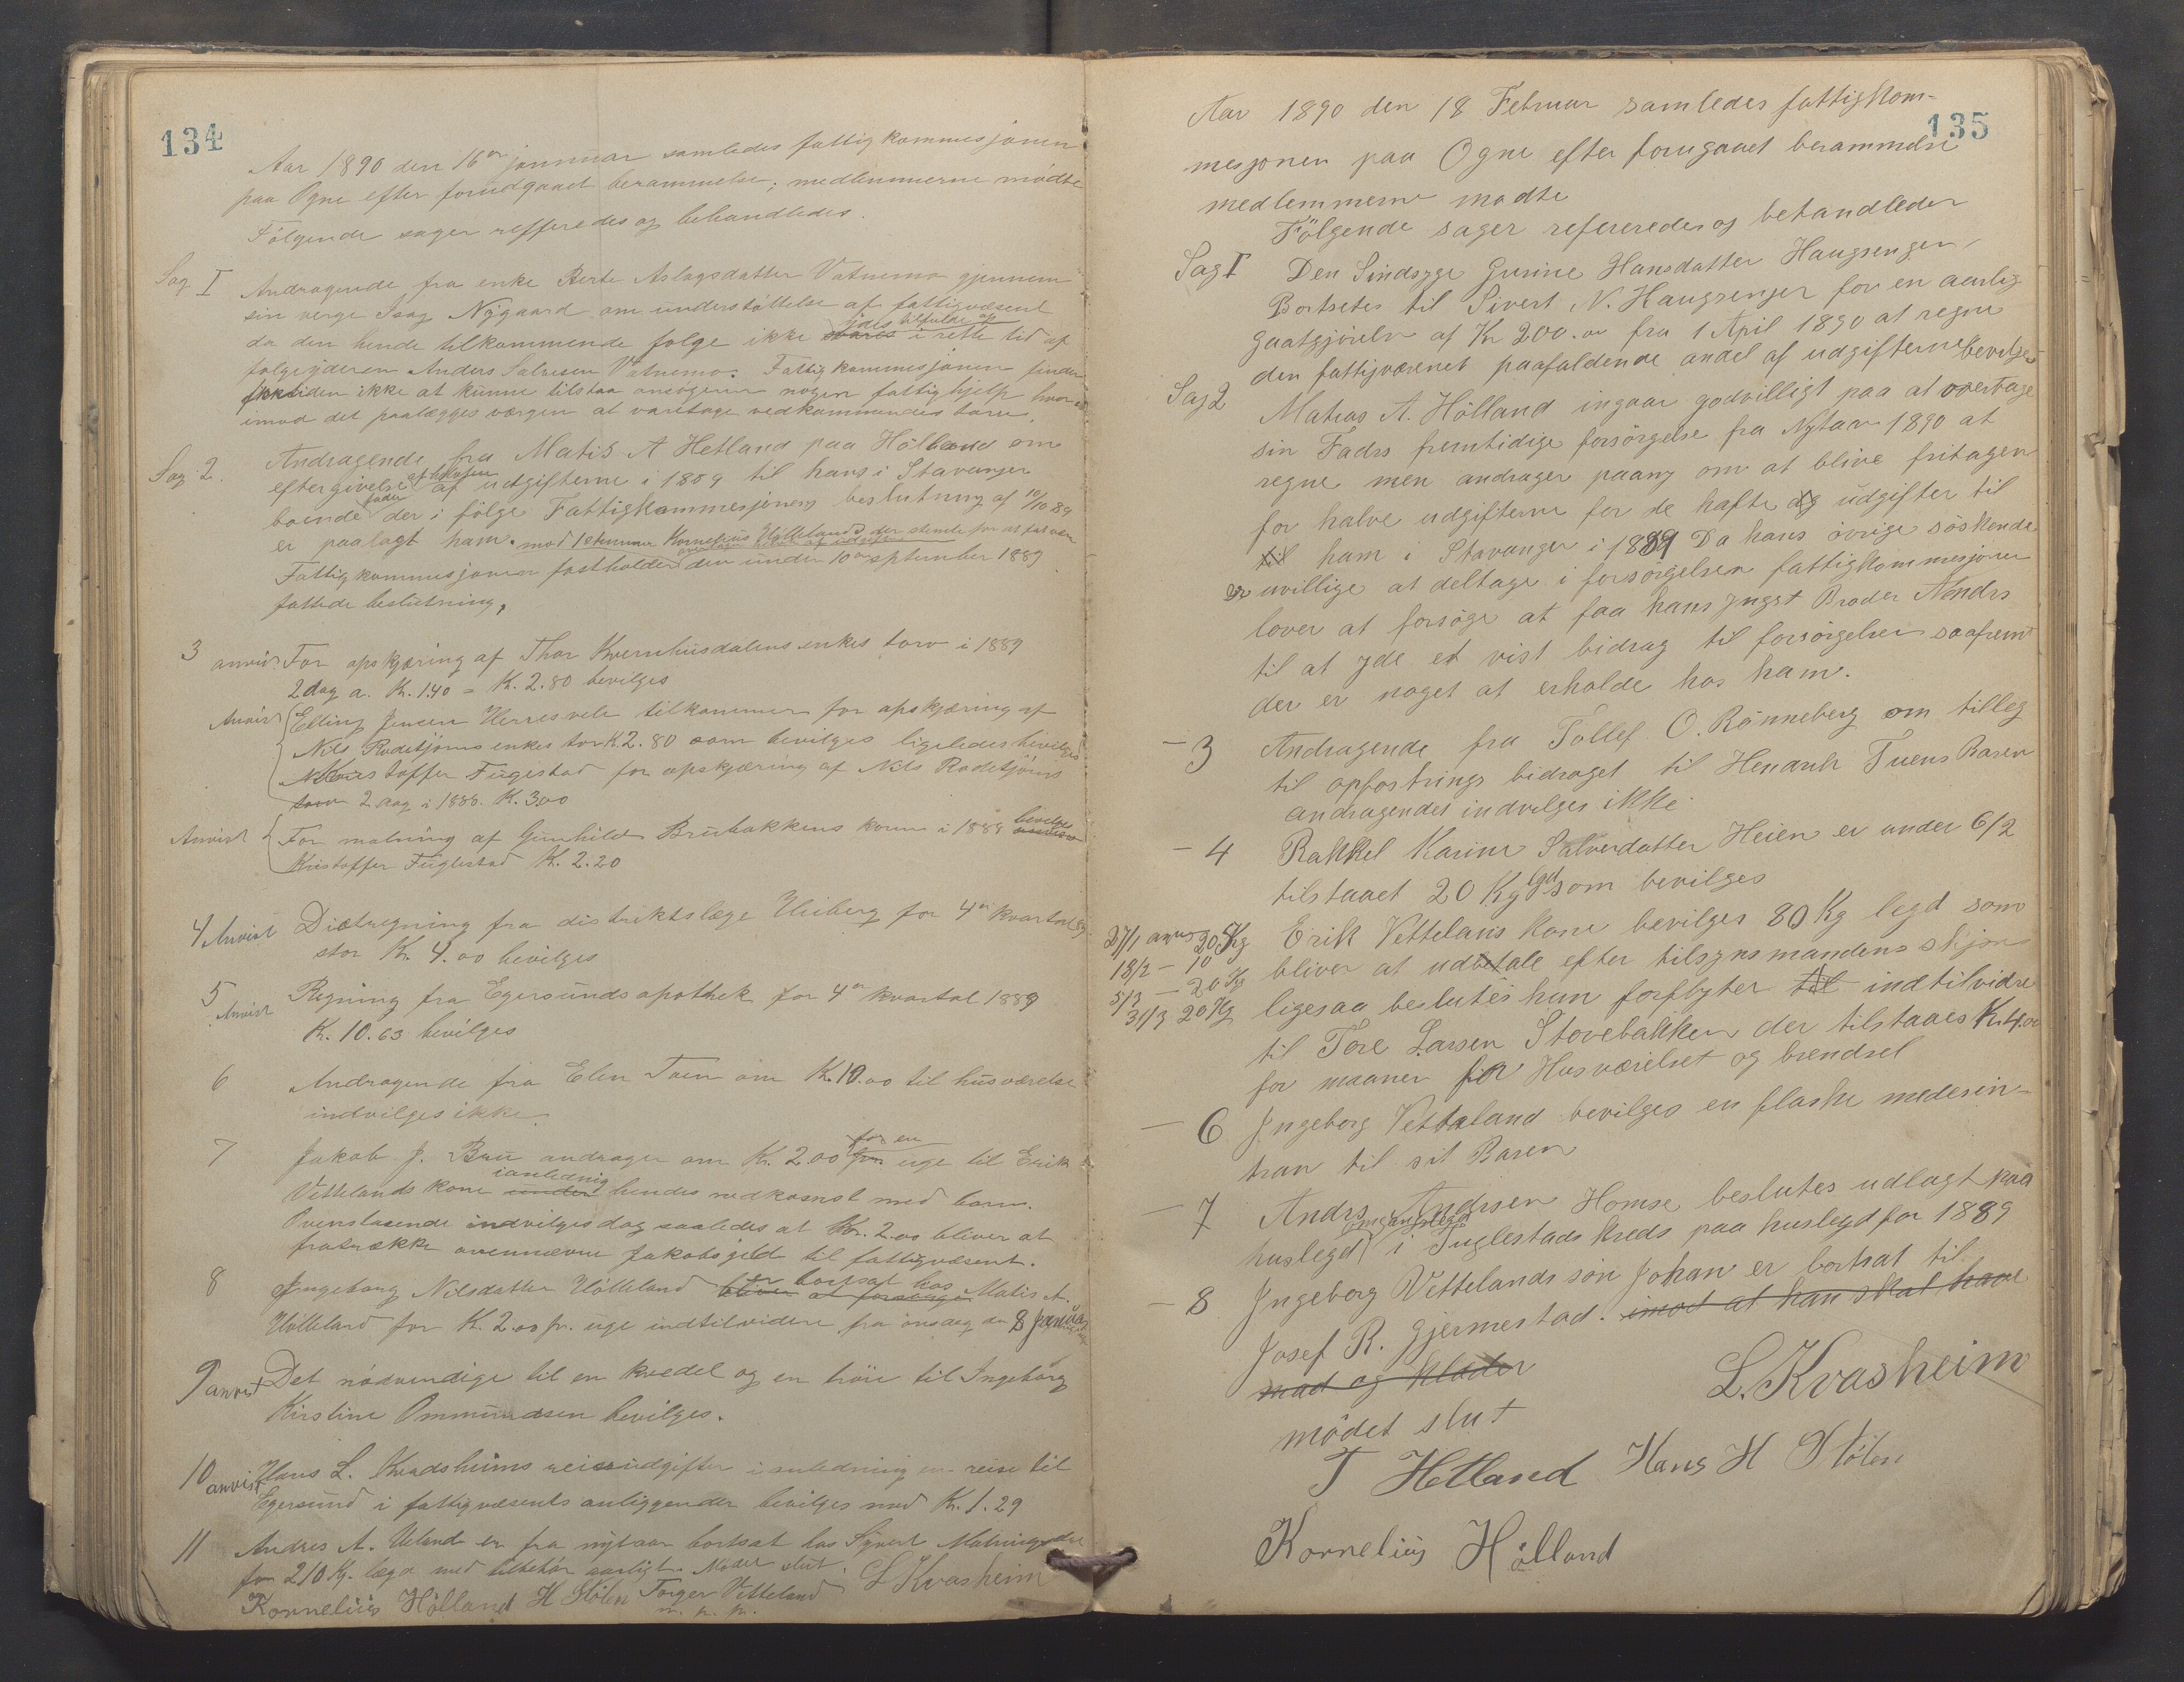 134
Aar 1890 den 16de januar samledes fattigkommesjonen
paa Ogne efter forudgaaet berammelse; medlemmerne mödte
Fölgende sager refferedes og behandledes.
Sag I Andragende fra enke Berte Aslagsdatter Vatnemo gjennem
sin verge Isag Nÿgaard om understöttelse af fattigvæsent
da den hende tilkommende folge ikke ydes i rette tid af
folgeyderen Anders Salvesen Vatnemo. Fattigkommesjonen finder
ikke at kunne tilstaa ansögeren nogen fattighjelp hvor
imod det paalægges værgen at varetage vedkommendes tarv.
Sag 2. Andragende fra Matis A Hetland paa Hölland om
eftergivelse af halvten af udgifterne i 1889 til hans i Stavanger
boende fader der i fölge Fattigkommesjonens beslutning af 10/10 89
er paalagt ham. mod 1 stemme Kornelius Höllands der stemte for at
Fattigkommesjonen fastholder den under 10de september 1889
fattede beslutning,
3 anvist For opskjæring af Thor Kvernhusdalens enkes torv i 1889
2 dag a. Kr. 1.40 = K. 2.80 bevilges
Anvist Elling Jensen Herresvele tilkommer for opskjæring af
Nils Rodetjöns enkes torv K. 2.80 som bevilges ligeledes bevilges
Kristoffer Fugestad for opskjæring af Nils Rodetjöns
torv 2 dag i 1888. K. 3.00
Anvist For malning af Gunhild Brubakkens korn i 1888 bevilges
Kristoffer Fuglestad K. 2.20
4 Anvist Diætregning fra distriktslæge Uleberg for 4de kvartal 89
stor K. 4.00 bevilges
5 Anvist Regning fra Egersunds apothek for 4de kvartal 1889
K. 10.63 bevilges
6 Andragende fra Elen Tuen om K. 10.00 til husværelse
indvilges ikke.
7 Jakob J. Bru andrager om K. 2.00 for en uge til Erik
Vettelands kone ianlednig hendes nedkomst med barn.
Ovenstaaende indvilges dog saaledes at Kr. 2.00 bliver at
fratrække ovennævnte Jakobs gjeld til fattigvæsent.
8 Ingeborg Nilsdatter Hölleland er bortsat hos Matis A.
Hölleland for K. 2.00 pr. uge indtilvidere fra onsdag den 8 Januar
9 anvist Det nödvendige til en kvedel og en tröie til Ingeborg
Kirstine Ommundsen bevilges.
10 anvist Hans L. Kvadsheims reiseudgifter i anledning en reise til
Egersund i fattigvæsents anliggender bevilges med Kr. 1.29
11 Andres A. Ueland er fra nytaar bortsat hos Sivert Matningsdal
for 210 Kg. legd med tilbehör aarligt. Mödet slut. L Kvasheim
Kornelius Hölland H Stölen Torger Vetteland
m. p. p.
135
Aar 1890 den 18 Februar samledes fattigkom-
mesjonen paa Ogne efter forugaaet berammelse
medlemmerne mødte
Fölgende sager refereredes og behandledes
Sag I Den Sindsyge Gurine Hansdatter Haugsengen,
Bortsetes til Sivert N. Haugsengen for en aarlig
gaatgjörelse af Kr 200.00 fra 1 April 1890 at regne
den fattigvæsenet paafaldende andel af udgifterne bevilges
Sag 2 Matias A. Hölland ingaar godvilligt paa at overtage
sin Fadrs fremtidige forsörgelse fra Nytaar 1890 at
regne men andrager paany om at blive fritagen
for halve udgifterne for de hafte udgifter til
ham i Stavanger i 1889 Da hans övrige söskende
er uvillige at deltage i forsörgelsen fattigkommesjonen
lover at forsöge at faa hans yngst Broder Andrs
til at yde et vist bidrag til forsörgelsen saafremt
der er noget at erholde hos ham.
– 3 Andragende fra Tollef O. Rönneberg om tilleg
til opfostrings bidraget til Henarik Tuens Baren
andragendet indvilges ikke
– 4 Rakkel Karine Salvesdatter Heien er under 6/2
tilstaaet 20 Kg legd som bevilges
27/1 anvist 20 Kg Erik Vettelans kone bevilges 80 Kg legd som
18/2 – 10 bliver at udbetale efter tilsynsmandens skjøn
5/3 – 20 Kg ligesaa beslutes hun forflyter til indtilvidre
31/3 20 Kg til Tore Larsen Stovebakken der tilstaaes Kr. 4.00
for maanen for Husværelset og brendsel
– 6 Ingeborg Vetteland bevilges en flaske medesin-
tran til sit Baren
– 7 Andrs Andrsen Homse beslutes udlagt paa
huslegd omgangslegd i Fuglestads kreds paa huslegd for 1889
– 8 Ingeborg Vettelands sön Johan er bortsat til
Josef R. Gjermestad. imod at han skal have
mad og klæder
mödet slut
L. Kvasheim
T Hetland Hans H Stölen
Kornelius Hölland